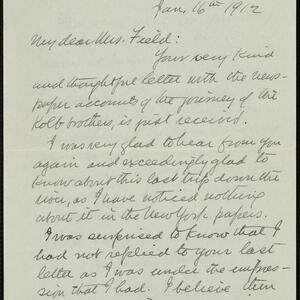 Jan, 16th 1912
My dear Mrs. Field:
Your very kind
and thoughtful letter with the news-
paper accounts of the journey of the
Kolb brothers, is just received.
I was very glad to hear from you
again and exceedingly glad to
know about this last trip down the
river, as I have noticed nothing
about it in the New York papers.
I was surprised to know that I
had not replied to your last
letter as I was under the impres-
sion that I had. I believe then